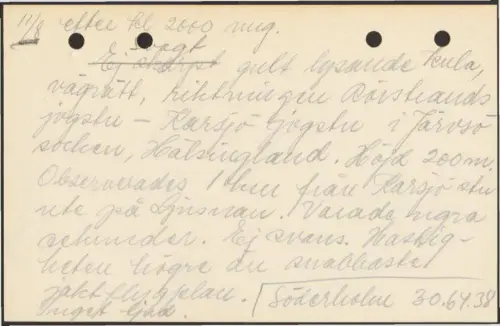 11/8 efter kl 2000 mng.
Svagt
Ej skarpt gult lysande kula,
vågrätt, riktningen Rörstrands
jvgstn – Karsjö jvgstn i Järvsö
socken, Hälsingland. Höjd 200 m.
Observerades 1 km från Karsjö stn
ute på Ljusnan. Varade några
sekunder. Ej svans. Hastig-
heten högre än snabbaste
jaktflygplan.
Inget ljud.
Söderholm 30.64.38